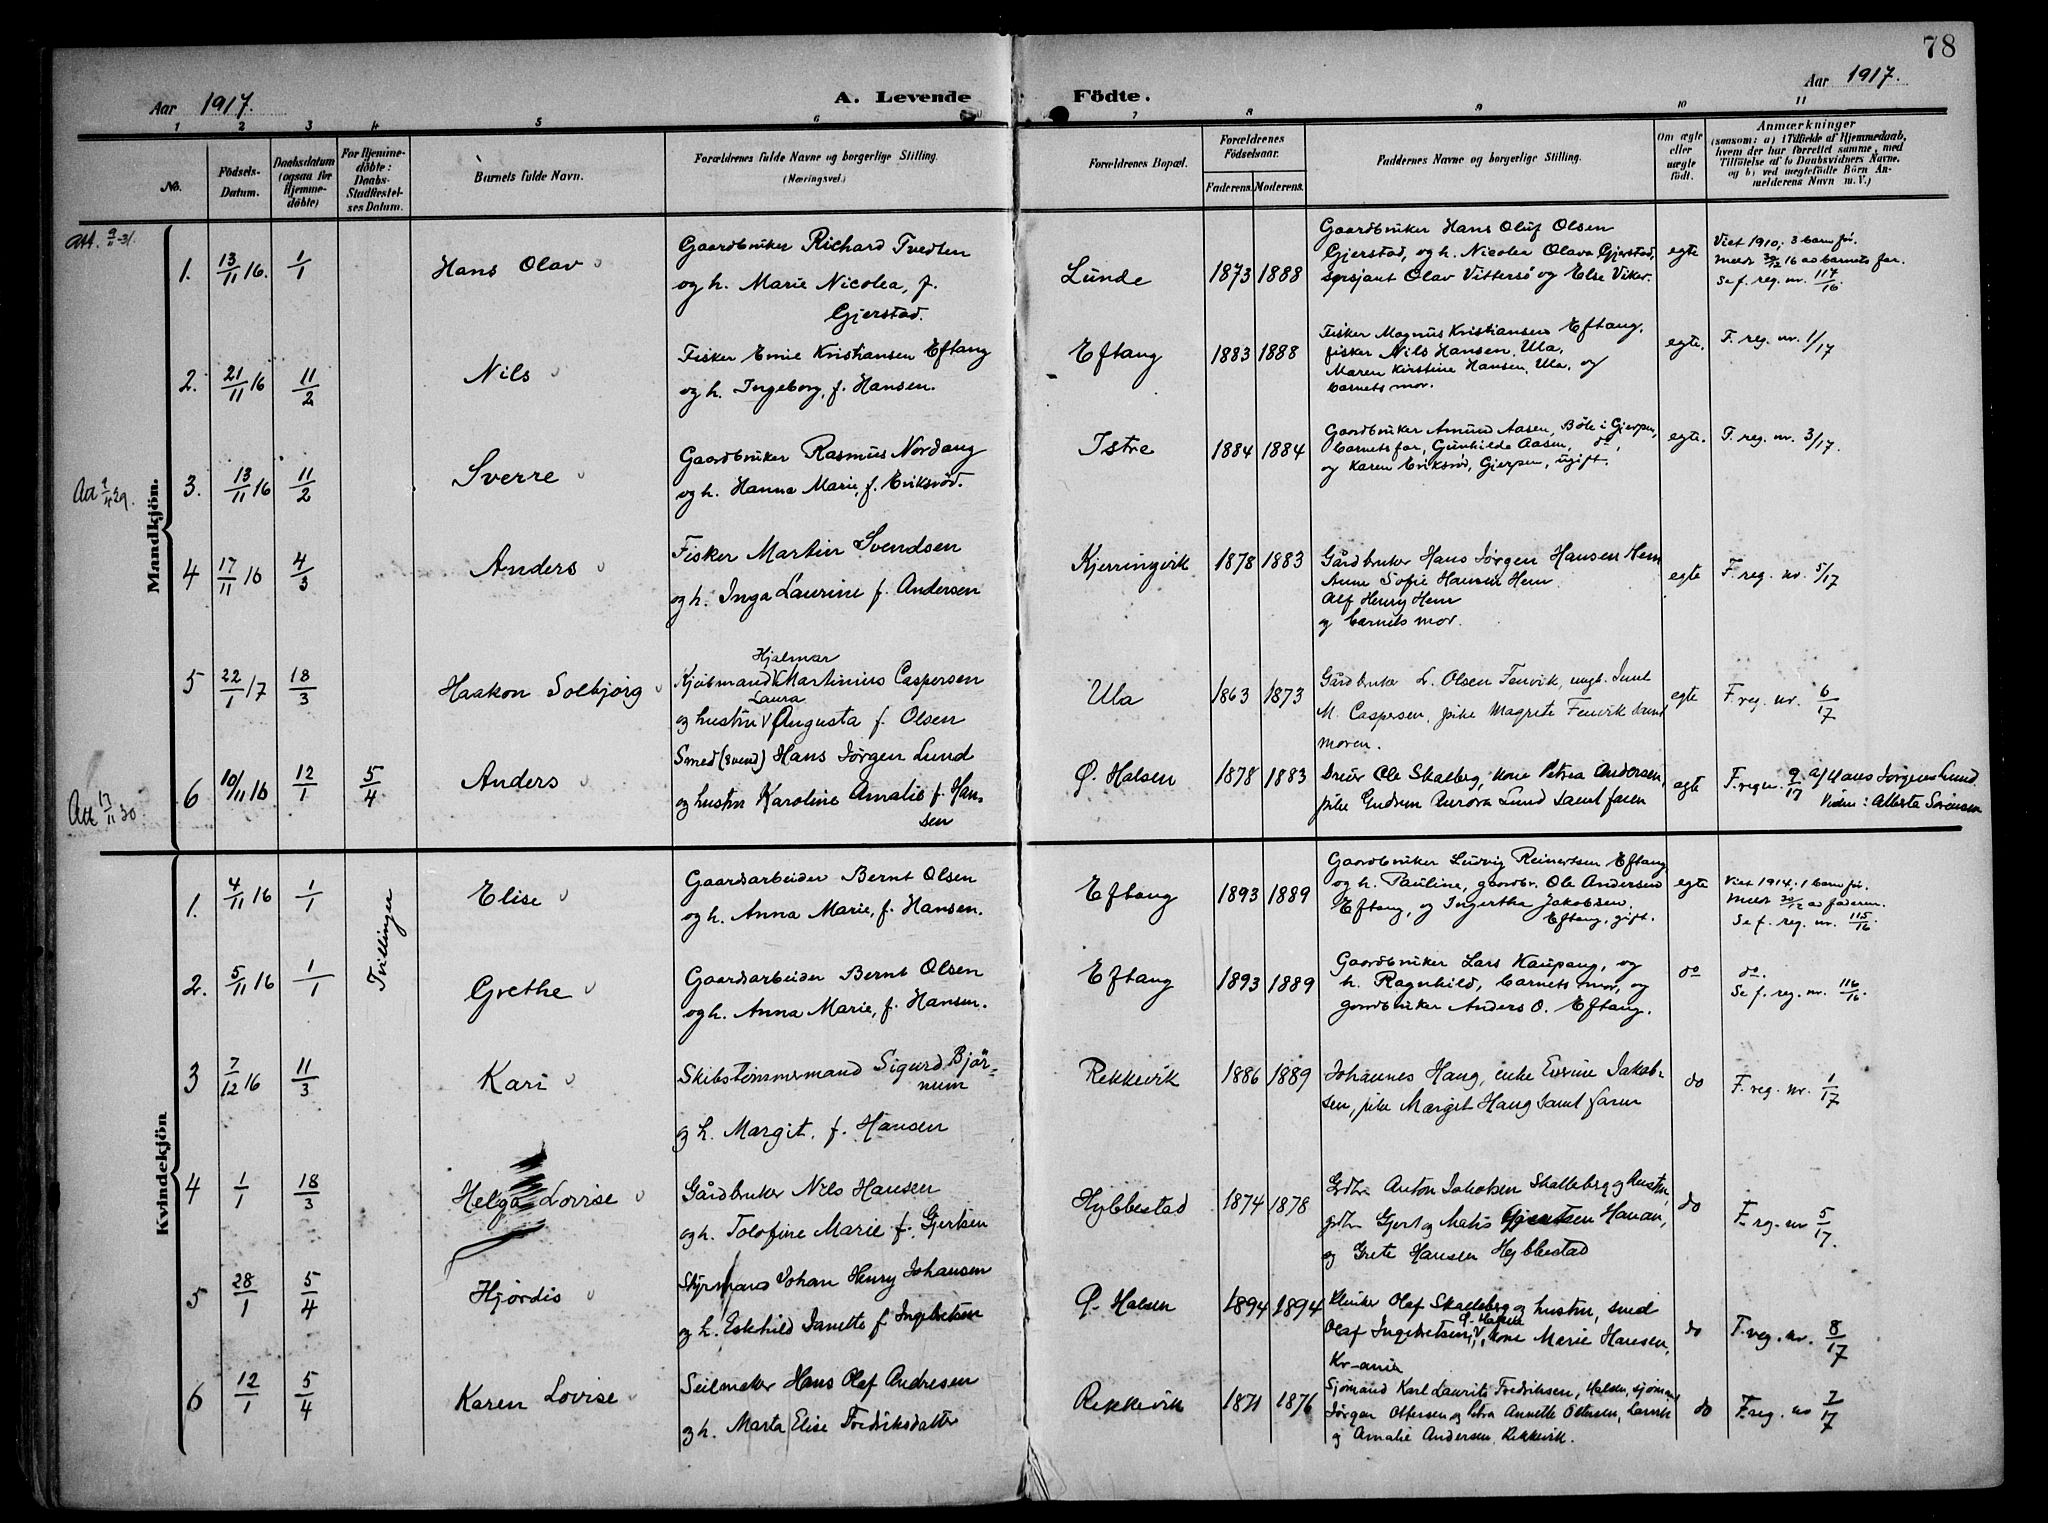 78
Aar 1917.
A. Levende Födte.
Aar 1917.
1 2 3 4 5 6 7 8 9 10 11
No.
Födsels-Datum.
Daabsdatum (ogsaa for Hjemme-döbte)
For Hjemme-döbte: Daabs-Stadfæstel-ses Datum.
Barnets fulde Navn.
Forældrenes fulde Navne og borgerlige Stilling. (Næringsvei.)
Forældrenes Bopæl.
Forældrenes Födselsaar.
Faderens. Moderens.
Faddernes Navne og borgerlige Stilling.
Om ægte eller uægte födt.
Anmærkninger
(saasom: a) i Tilfælde af Hjemmedaab,
hvem der har forrettet samme, med
Tilföielse af to Daabsvidners Navne.
og b) ved uægtefödte Börn An-
melderens Navn m. V.)
Mandkjön.
Att. 9/11-31.
1. 13/11 16. 1/1 Hans Olav
Gaardbruker Richard Tvedten
og h. Marie Nicolea, f.
Gjerstad.
Lunde 1873 1888
Gaardbruker Hans Oluf Olsen
Gjerstad, og h. Nicolea Olava Gjerstad,
sersjant Olav Vittersö og Else Viker.
egte
Viet 1910; 3 barn før.
Meldt 30/12 16 av barnets far.
Se f. reg. nr. 117/16.
2. 21/11 16 11/2 Nils
Fisker Emie Kristiansen Eftang
og h. Ingeborg, f. Hansen.
Eftang 1883 1888
Fisker Magnus Kristiansen Eftang,
fisker Nils Hansen, Ula,
Maren Kirstine Hansen, Ula, og
barnets mor.
egte. F. reg. nr. 1/17
Att 29.
3. 13/11 16 11/2 Sverre
Gaardbruker Rasmus Nordang
og h. Hanna Marie, f. Eriksröd.
Istre 1884 1884
Gaardbruker Amund Aasen, Böle i Gjerpen,
barnets far, Gunhilde Aasen, do,
og Karen Eriksröd, Gjerpen, ugift.
egte. F. reg. nr. 3/17.
4 17/11 16 4/3 Anders
Fisker Martin Svendsen
og h. Inga Laurine f. Andersen
Kjerringvik 1878 1883
Gårdbruker Hans Jörgen Hansen Hem
Anne Sofie Hansen Hem
Alf Henry Hem
og barnets mor.
egte F. reg. nr. 5/17
5 22/1 17 18/3 Haakon Solbjörg
Hjalmar
Kjöbmand V Martinius Caspersen
Laura
og hustru V Augusta f. Olsen
Ula 1863 1873
Gårdbruker L. Olsen Fenvik, ungk.
M. Caspersen, pike Magrete Fenvik samt
moren.
egte F. reg. nr. 6/17
Att 13/11 30.
6 10/11 16 12/1 5/4 Anders
Smed (svend) Hans Jörgen Lund
og hustru Karoline Amalie f. Han-
sen
Ø. Halsen 1878 1883
Ole Skalberg, kone Petrea Andersen,
pike Gudrun Aurora Lund samt faren
egte F. regr. 9/17 af Hans Jörgen Lund.
Viden: Alberta Sörensen
Kvindekjön
Tvillinger
1. 4/11 16 1/1 Elise
Gaardsarbeider Bernt Olsen
og h. Anna Marie, f. Hansen.
Eftang 1893 1889
Gaardbruker Ludvig Reinertsen Eftang
og h. Pauline, gaardbr. Ole Andersen
Eftang, og Ingertha Jakobsen
Eftang, gift.
egte
Viet 1914; 1 barn før.
Meldt 30/12 av faderen.
Se f. reg. nr. 115/16.
2. 5/11 16 1/1 Grethe
Gaardsarbeider Bernt Olsen
og h. Anna Marie, f. Hansen.
Eftang 1893 1889
Gaardbruker Lars Kaupang, og
h. Ragnhild, barnets mor, og
gaardbruker Anders O. Eftang.
do
do.
Se f. reg. nr. 116/16.
3 7/12 16 11/3 Kari
Skibstömmermand Sigurd Björ-
num
og h. Margit, f. Hansen
Rekkevik 1886 1889
Johannes Haug, enke Evrine Jakob-
sen, pike Margit Haug samt faren
do F. reg. nr. 1/17
4 1/1 18/3 Helga Lovise
Gårdbruker Nils Hansen
og h. Tolofine Marie f. Gjertsen
Hybbestad 1874 1878
Anton Jakobsen Skalleberg og hustru,
Gjert og Matis Gjertsen Hanan,
og Grete Hansen Hybbestad
do F. rg. nr 5/17.
5 28/1 5/4 Hjördis
Styrmand Johan Henry Johansen
og h. Eskhild Janette f Ingebretsen
Ø. Halsen 1894 1894
Olaf Skalleberg og hustru, smed
Ø. Halsen
Olaf Ingebretsen, V kone Marie Hansen,
Kr-ania
do F. reg. nr. 8/17
6 12/1 5/4 Karen Lovise
Seilmaker Hans Olaf Andresen
og h. Marta Elise Fredriksdatter
Rekkevik 1871 1876
Sjömand Karl Laurits Fredriksen, Halsen, sjömand
Jörgen Ottersen og Petra Annette Ottersen, Larvik
og Amalie Andersen, Rekkevik.
do F. reg. no 7/17